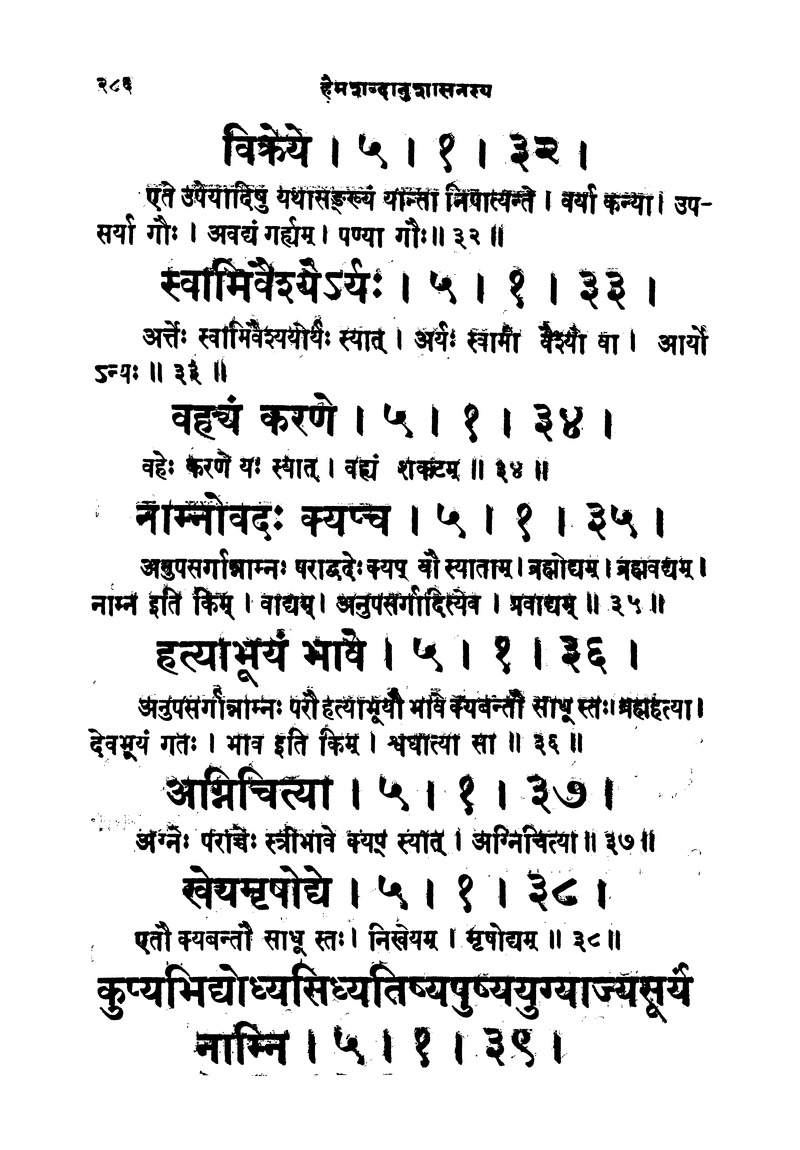 २८६ हेमशब्दानुशासनस्य
विक्रेये । ५ । १ । ३२ ।
एते उपेयादिषु यथासङ्ख्यं यान्ता निपात्यन्ते । वर्या कन्या । उप-
सर्या गौः । अवद्यं गर्ह्यम् । पण्या गौः॥ ३२ ॥
स्वामिवैश्येऽर्यः । ५ । १ । ३३ ।
अर्त्तेः स्वामिवैश्ययोर्यः स्यात् । अर्यः स्वामी वैश्यो वा । आर्यो
ऽन्यः ॥ ३३ ॥
वह्यं करणे । ५ । १ । ३४ ।
वहेः करणे यः स्यात् । वह्यं शकटम् ॥ ३४ ॥
नाम्नोवदः क्यप्च । ५ । १ । ३५ ।
अनुपसर्गान्नाम्नः पराद्वदेः क्यप् यौ स्याताम् । ब्रह्मोद्यम् । ब्रह्मवद्यम् ।
नाम्न इति किम् । वाद्यम् । अनुपसर्गादित्येव । प्रवाद्यम् ॥ ३५ ॥
हत्याभूयं भावे । ५ । १ । ३६ ।
अनुपसर्गान्नाम्नः परौ हत्याभूयौ भावे क्यबन्तौ साधू स्तः। ब्रह्महत्या ।
देवभूयं गतः । भाव इति किम् । श्वघात्या सा ॥ ३६ ॥
अग्निचित्या । ५ । १ । ३७ ।
अग्नेः पराच्चेः स्त्रीभावे क्यप् स्यात् । अग्निचित्या ॥ ३७ ॥
खेयमृषोद्ये । ५ । १ । ३८ ।
एतौ क्यबन्तौ साधू स्तः । निखेयम् । मृषोद्यम् ॥ ३८ ॥
कुप्यभिद्योध्यसिध्यतिष्यपुष्ययुग्याज्यसूर्यं
नाम्नि । ५ । १ । ३९ ।